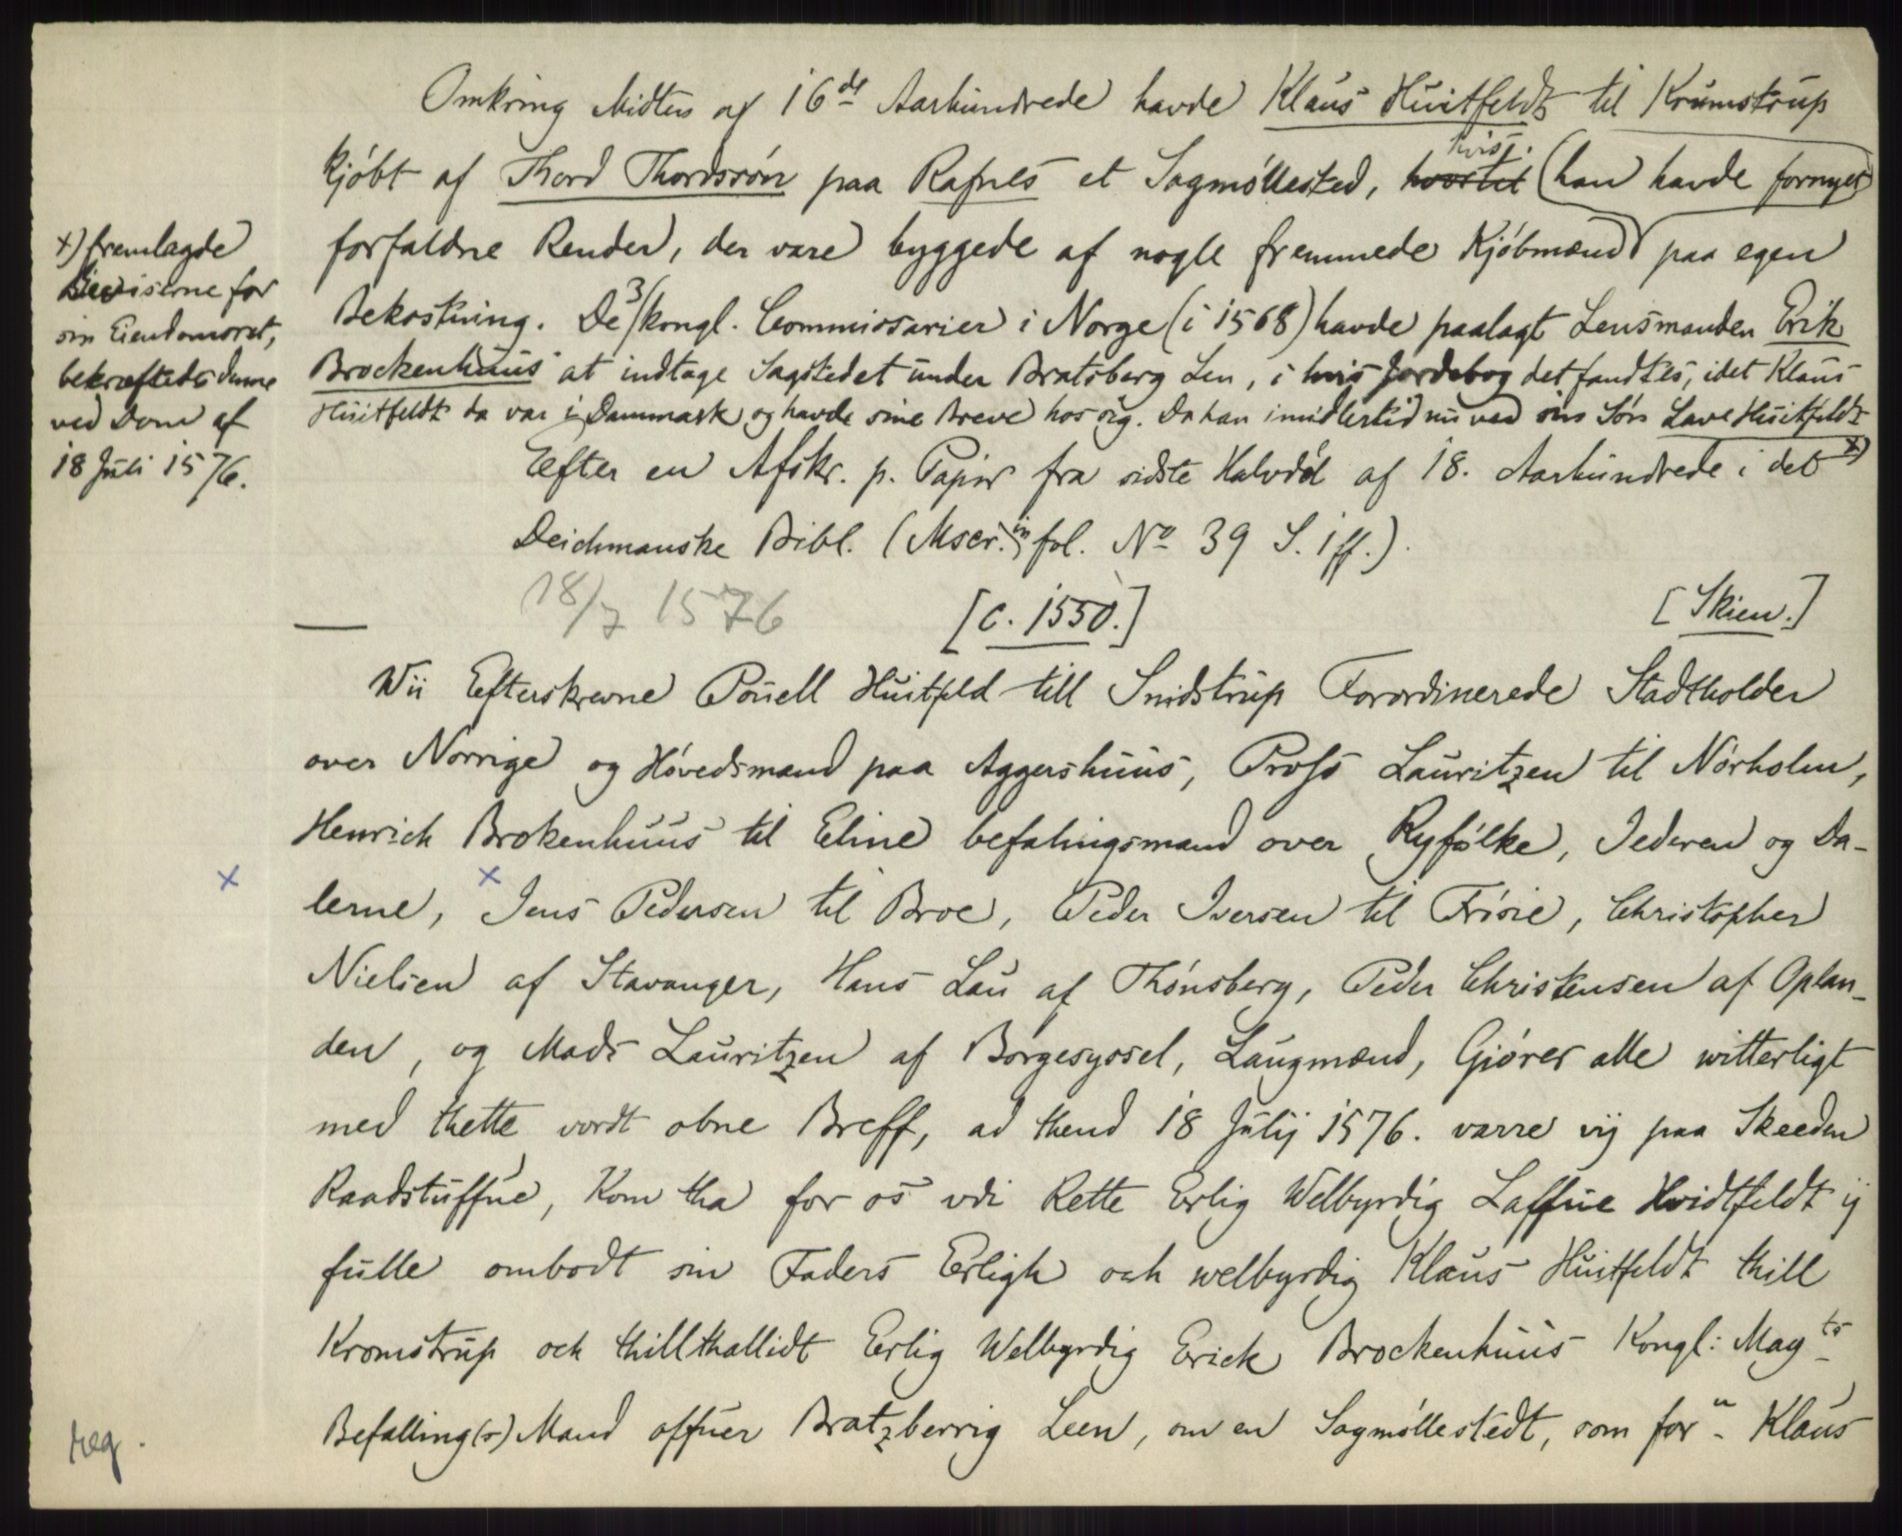 Omkring Midten af 16de Aarhundrede havde Klaus Huitfeldt til Krumstrup
kjøbt af Thord Thordssøn paa Rafnes et Sagmøllested, hvortil hvis. (han havde fornyet)
forfaldne Render, der vare byggede af nogle fremmede Kjøbmænd paa egen
Bekostning. De 3 kongl. Commissarier i Norge (i 1568) havde paalagt Lensmanden Erik
Brockenhuus at indtage Sagstedet under Bratsberg Len, i hvis Jordebog det fandtes, idet Klaus
Huitfeldt da var i Danmark og havde sine Breve hos sig. Da han imidlertid nu ved sin Søn Lave Huitfeldt
x)
x) fremlagde
Beviserne for
sin Eiendomsret,
bekræftedes denne
ved Dom af
18 Juli 1576.
Efter en Afskr. p. Papir fra sidste Halvdel af 18. Aarhundrede i det
Deichmanske Bibl. (Mscr. in fol. No 39 S. 1 ff.).
18/7 1576 [c. 1550.] [Skien.]
Wii Efterskrevne Pouell Huitfeld till Snidstrup Forordinerede Stadtholder
over Norrige og Høvedsmand paa Aggershuus, Profs Lauritzen til Nørholm,
Henrich Brokenhuus til Eline befalingsmand over Ryfølke, Jederen og Da-
x lerne, x Jens Pedersen til Broe, Peder Iversen til Frøsie, Christopher
Nielsen af Stavanger, Hans Lau af Thønsberg, Peder Christensen af Oplan-
den, og Mads Lauritzen af Borgesyssel, Laugmænd, Giører alle witterligt
med thette vordt obne Breff, ad thend 18 Julij 1576. varre vij paa Skeeden
Raadstuffue, Kom tha for os vdi Rette Erlig Welbyrdig Laffue Hvidtfeldt ij
fulle ombodt sin Faders Erligh och welbyrdig Klaus Huitfeldt thill
Kromstrup och thillthallidt Erlig Welbyrdig Erick Brockenhuus Kongl: Mayts
Befalling(s) Mand offuer Bratzberrig Leen, om en Sagmøllestedt, som forn Klaus
reg.